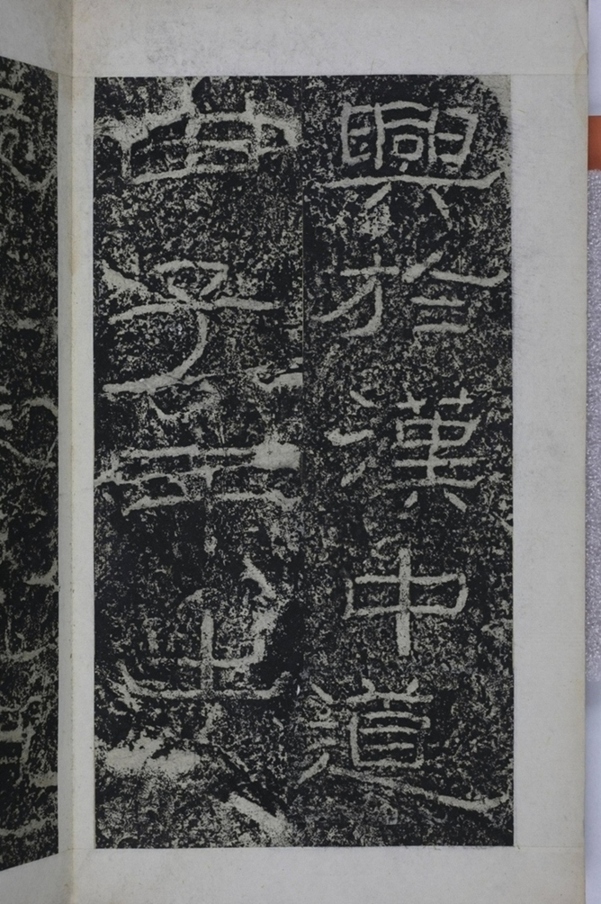 興於漢中道
由子午出